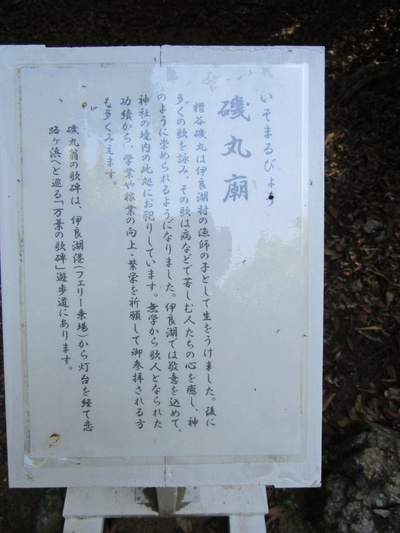 いそまるびょう
磯丸廟
糟谷磯丸は伊良湖村の漁師の子として生をうけました。後に
多くの歌を詠み、その歌は病などで苦しむ人たちの心を癒し、神
のように崇められるようになりました。伊良湖では敬意を込めて、
神社の境内の此処にお祀りしています。無学から歌人となられた
功績から、学業や稼業の向上・繁栄を祈願して御参拝される方
も多くみえます。
磯丸翁の歌碑は、伊良湖港(フェリー乗場)から灯台を経て恋
路ヶ浜へと巡る「万葉の歌碑」遊歩道にあります。